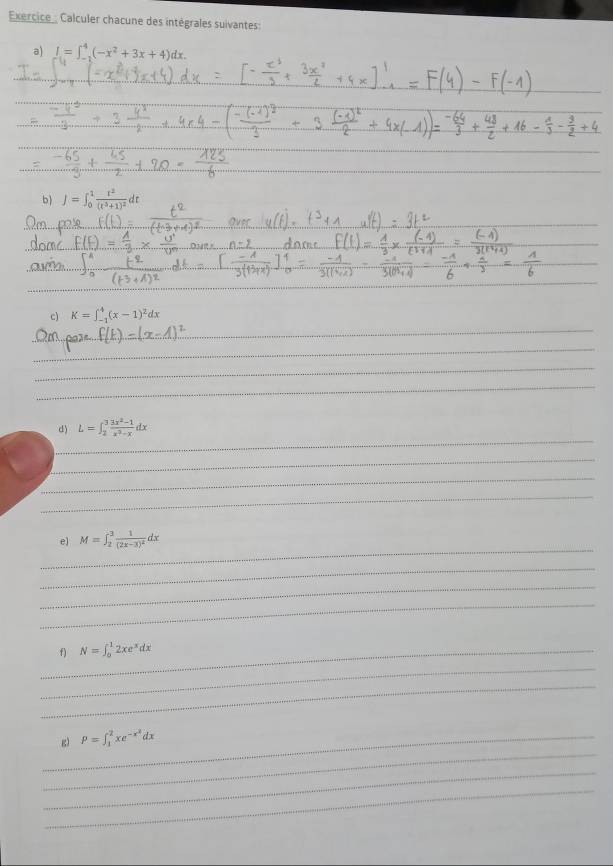 Exercice : Calculer chacune des intégrales suivantes:
a) I = ∫₋₁⁴(−x² + 3x + 4)dx.
I = ∫₋₁⁴ (−x²+3x+4) dx = [−x³/3 + 3x²/2 + 4x]₋₁⁴ = F(4) − F(−1)
= −4³/3 + 3 4²/2 + 4×4 − (−(−1)³/3 + 3 (−1)²/2 + 4×(−1)) = −64/3 + 48/2 + 16 − 1/3 − 3/2 + 4
= −65/3 + 45/2 + 20 = 125/6
b) J = ∫₀¹ t²/(t³+1)² dt
On pose f(t) = t²/(t³+1)² avec u(t) = t³+1 u'(t) = 3t²
donc F(t) = 1/3 × u'/uⁿ avec n=2 donc F(t) = 1/3 × (−1)/(t³+1) = (−1)/(3(t³+1))
∫₀¹ t²/(t³+1)² dt = [−1/(3(t³+1))]₀¹ = −1/(3(1³+1)) − −1/(3(0³+1)) = −1/6 + 1/3 = 1/6
c) K = ∫₋₁⁴(x − 1)²dx
On pose f(t) = (x−1)²
d) L = ∫₂³ (3x²−1)/(x³−x) dx
e) M = ∫₂³ 1/(2x−3)² dx
f) N = ∫₀¹ 2xeˣdx
g) P = ∫₁² xe^(−x²)dx